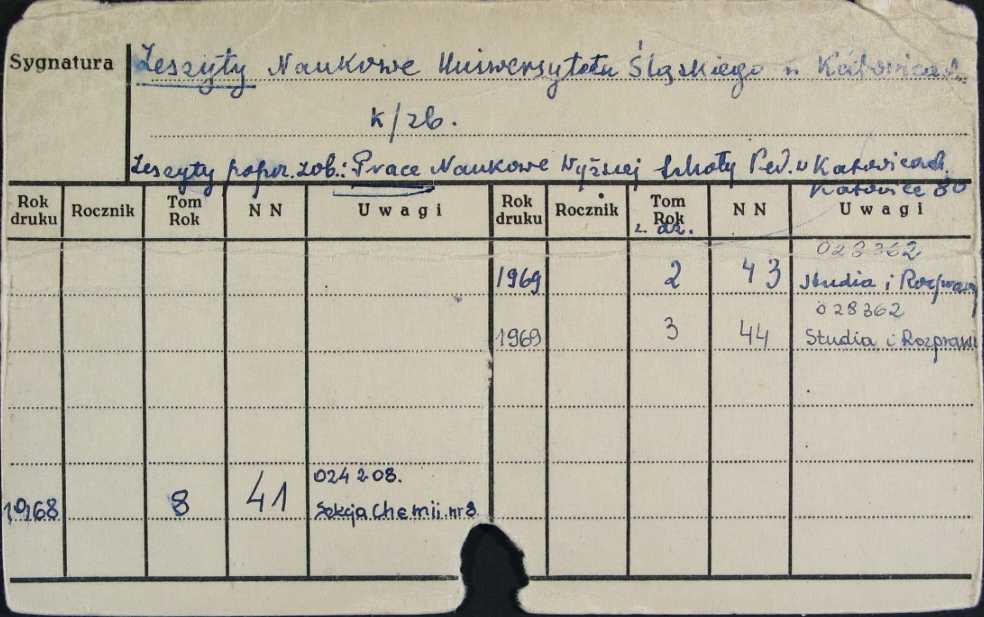 Sygnatura
Zeszyty Naukowe Uniwersytetu Śląskiego w Katowicach
K/zb.
Zeszyty popr. zob.: Prace Naukowe Wyższej Szkoły Ped. w Katowicach
Katowice 80
Rok druku Rocznik Tom Rok NN Uwagi Rok druku Rocznik Tom Rok NN Uwagi
028362
1969 2 43 Studia i Rozprawy
028362
1969 3 44 Studia i Rozprawy
024208.
1968 8 41 Sekcja Chemii. nr 8